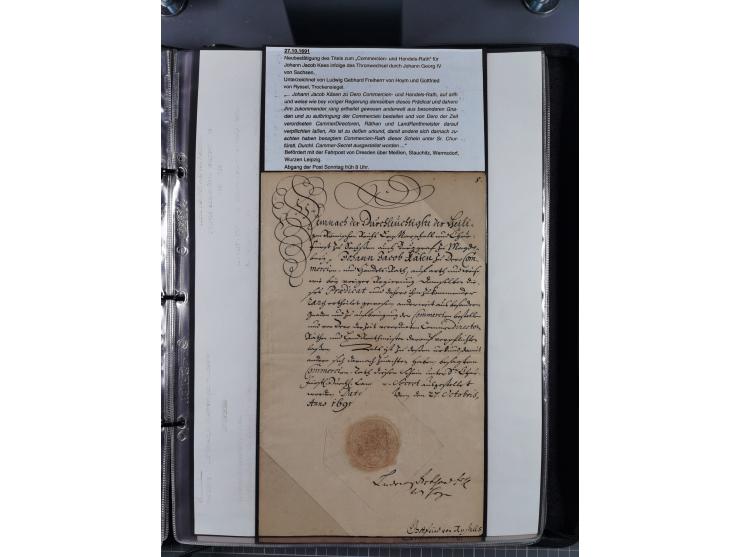 27.10.1691
Neubestätigung des Titels zum „Commercien- und Handels-Rath" für
Johann Jacob Kees infolge des Thronwechsel durch Johann Georg IV
von Sachsen.
Unterzeichnet von Ludwig Gebhard Freiherr von Hoym und Gottfried
von Ryssel, Trockensiegel.
„... Johann Jacob Käsen zu Dero Commercien- und Handels-Rath, auf arth
und weise wie bey voriger Regierung demselben dieses Prädicat und dahero
ihm zukommender rang ertheilet gewesen anderweit aus besonderer Gna-
den und zu aufbringung der Commercie bestellen und von Dero der Zeit
verordneten CammerDirectoren, Räthen und LandRenthmeister darauf
verpflichten laßen, Als ist zu deßen urkund, damit andere sich darnach zu-
achten haben besagtem Commercien-Rath dieser Schein unter Sr. Chur-
fürstl. Durchl. Cammer-Secret ausgestellet worden ..."
Befördert mit der Fahrpost von Dresden über Meißen, Stauchitz, Wermsdorf,
Wurzen Leipzig.
Abgang der Post Sonntag früh 8 Uhr.
Demnach der Durchleuchtigste der Heili-
gen Römischen Reichs Ertz Marschall und Chur-
fürst zu Sachsen auch Burggraf zu Magde-
burg Johann Jacob Käsen zu Dero Com-
mercien- und Handels-Rath, auf arth und weise
wie bey voriger Regierung demselben die-
ses Prædicat und dahero ihm zukommender
rang ertheilet gewesen anderweit aus besondern
Gnaden und zu aufbringung der Commercien bestellen
und von Dero der Zeit verordneten Cammer Directoren
Räthen und Landrenthmeister darauf verpflichten
laßen Als ist zu deßen urkund damit
andere sich darnach zuachten haben besagtem
Commercien Rath dieser Schein unter Sr Chur-
fürstl. Durchl. Cammer-Secret ausgestellet
worden Dato den 27 Octobris,
Anno 1691